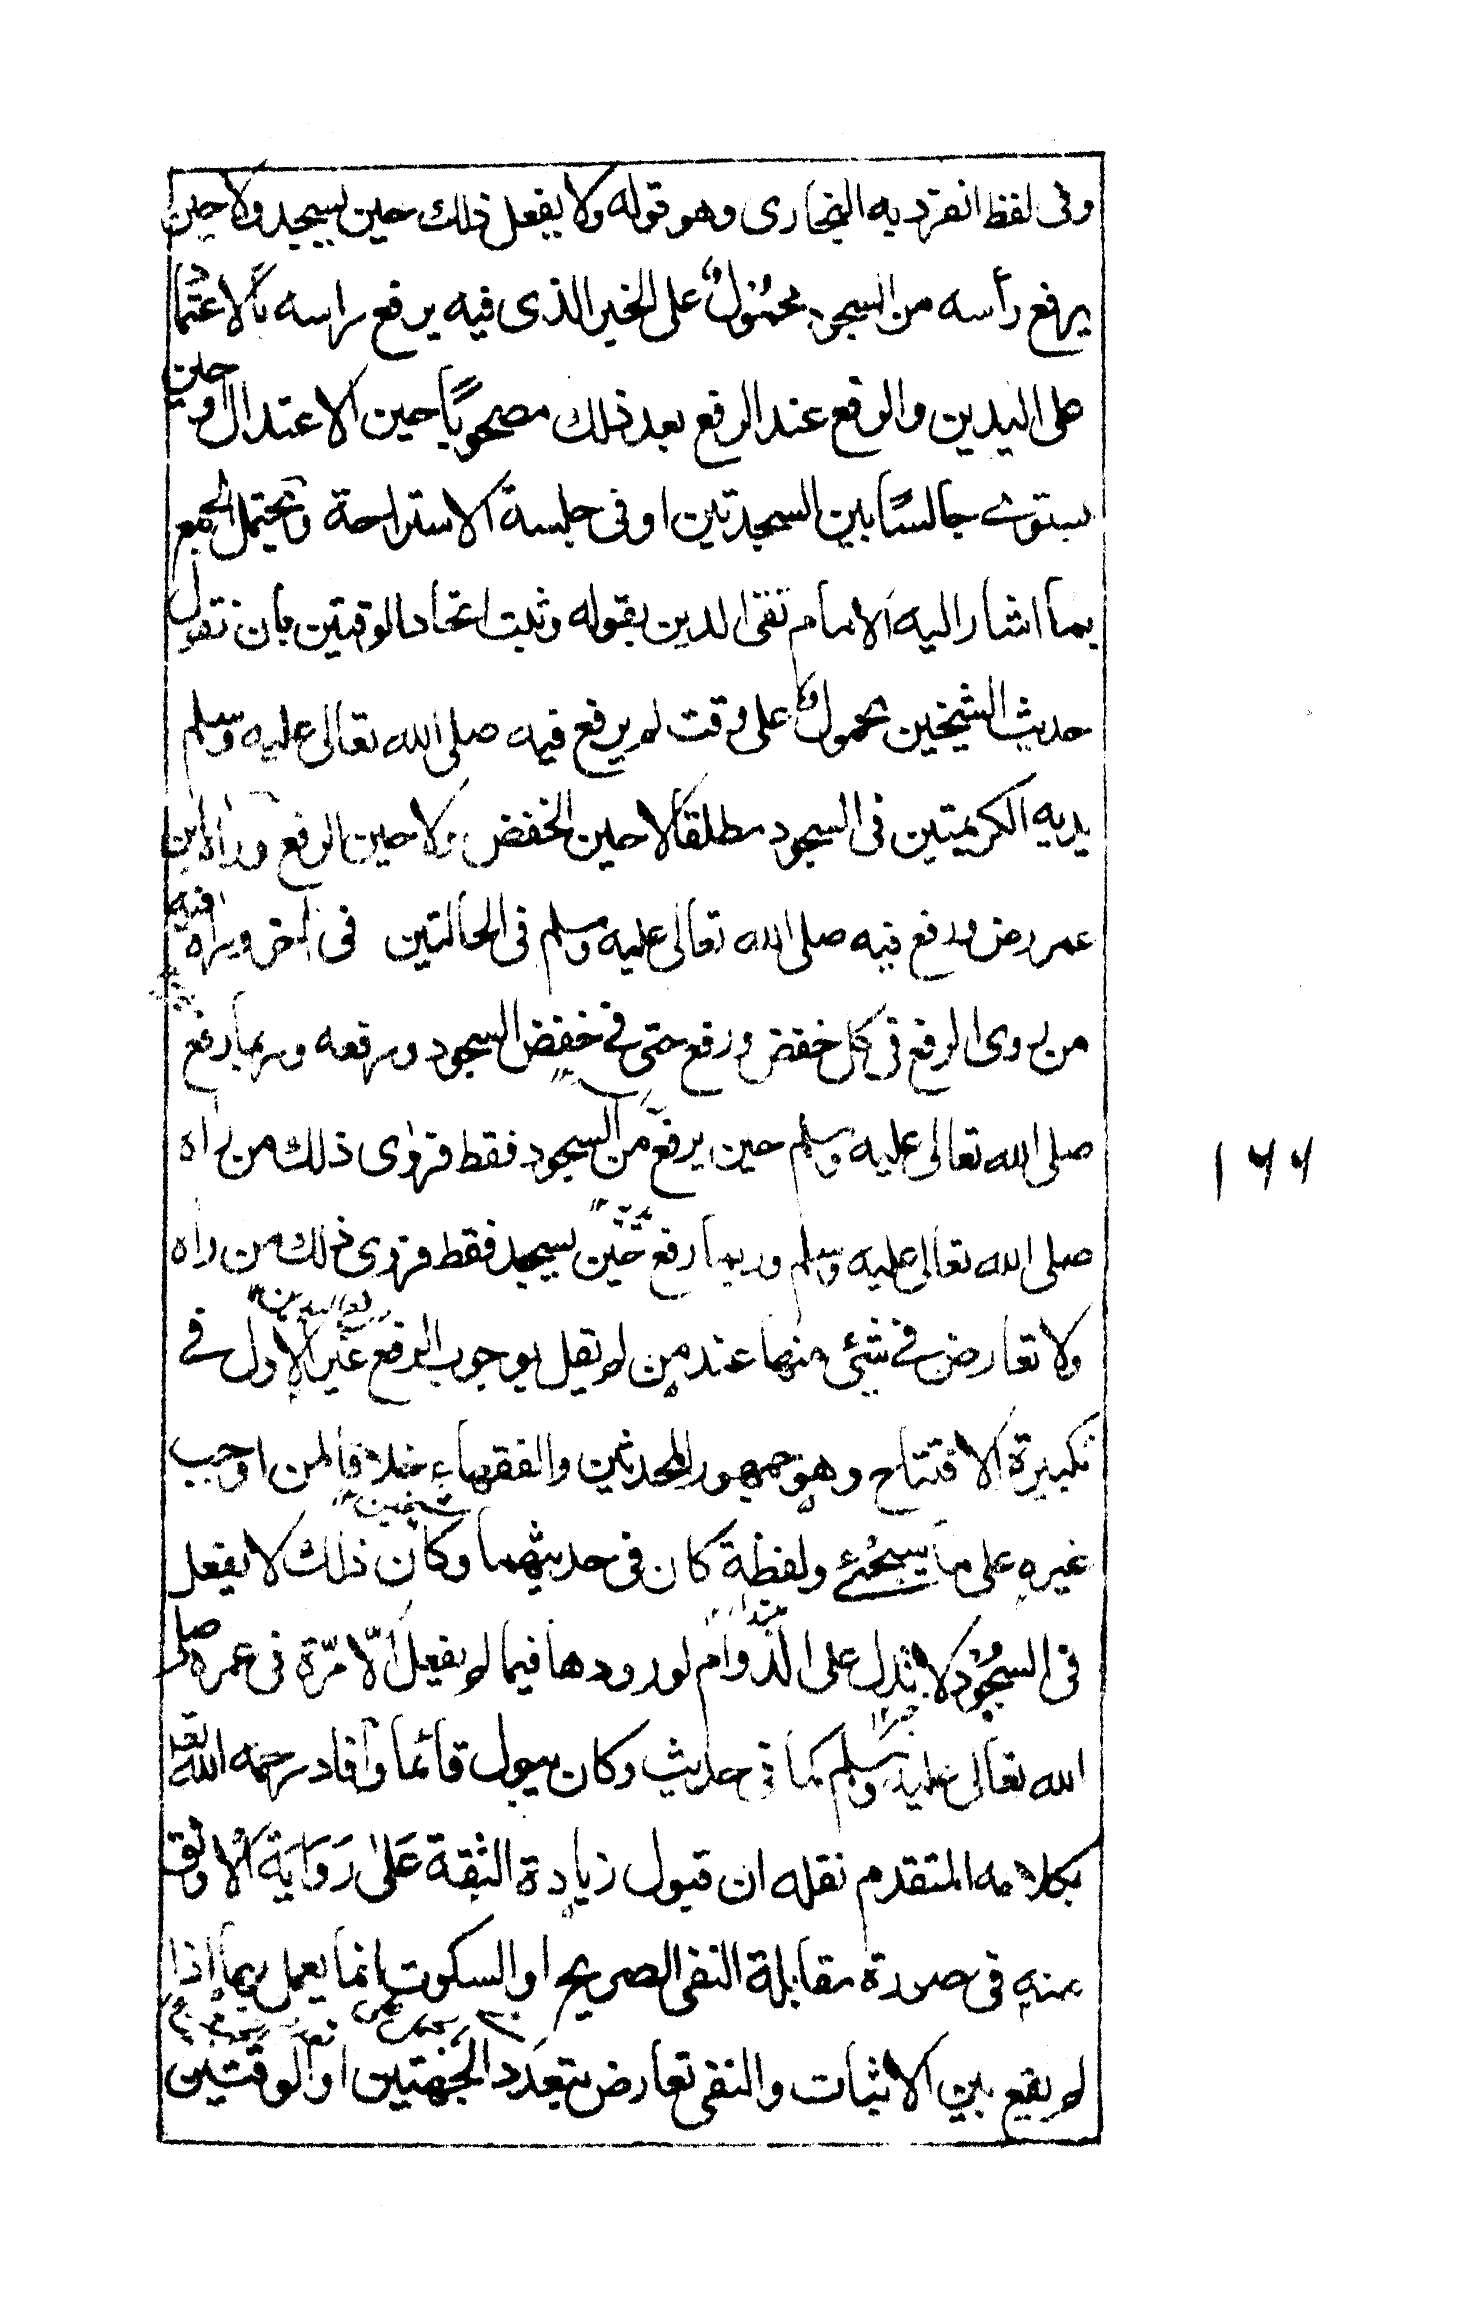 وفى لفظ انفرد به البخارى وهو قوله ولا يفعل ذلك حين يسجد ولا حين
يرفع رأسه من السجود محمول على الخبر الذى فيه يرفع راسه بالاعتماد
على اليدين والرفع عند الرفع بعد ذلك مصحوبًا حين الاعتدال او حين
يستوى جالسًا بين السجدتين او فى جلسة الاستراحة ويحتمل الجمع
بما اشار اليه الامام تقى الدين بقوله وثبت اتحاد الوقتين بان نقول
حديث الشيخين محمول على وقت لم يرفع فيه صلى الله تعالى عليه وسلم
يديه الكريمتين فى السجود مطلقا لا حين الخفض ولا حين الرفع وراٰه ابن
عمر رض ورفع فيه صلى الله تعالى عليه وسلم فى الحالتين فى اخر وراٰه فيه
من روى الرفع فى كل خفض ورفع حتى فى خفض السجود ورفعه وربما رفع
صلى الله تعالى عليه وسلم حين يرفع من السجود فقط فروٰى ذلك من راٰه
صلى الله تعالى عليه وسلم وربما رفع حين يسجد فقط فروى ذلك من راٰه
رفع اليدين
ولا تعارض فى شئ منها عند من لم يقل بوجوب الرفع غير الاول فى
تكبيرة الافتتاح وهو جمهور المحدثين والفقهاء خلافا لمن اوجب
شيخين
غيره على ما سيجئ ولفظة كان فى حديثهما وكان ذلك لا يفعل
فى السجود لا تدل على الدوام لورودها فيما لم يفعل الّا مرّة فى عمره صلى
الله تعالى عليه وسلم كما فى حديث وكان يبول قائما وافاد رحمه الله تعـ
بكلامه المتقدم نقله ان قبول زيادة الثقة عَلٰى رَوَايَة الاوثق
منه فى صورة مقابلة النفى الصريح او السكوت انما يعمل بها اذا
لم يقع بين الاثبات والنفى تعارض بتعدد الجهتين او الوقتين
۱۶۶